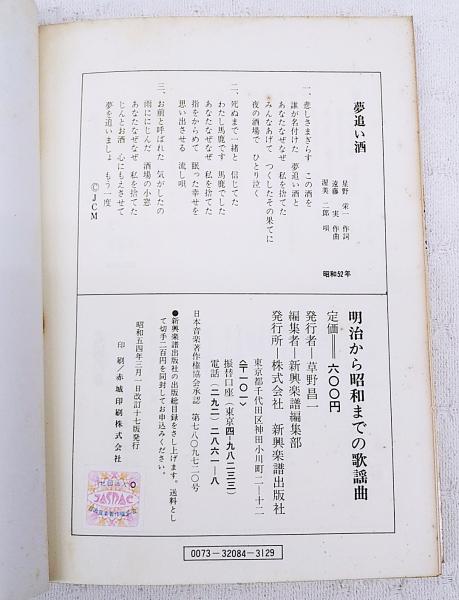 夢追い酒
星野 栄一 作詞
遠藤 実 作曲
渥美 二郎 唄
昭和52年
一、悲しさまぎらす この酒を
誰が名付けた 夢追い酒と
あなたなぜなぜ 私を捨てた
みんなあげて つくしたその果てに
夜の酒場で ひとり泣く
二、死ぬまで一緒と 信じてた
わたし馬鹿です 馬鹿でした
あなたなぜなぜ 私を捨てた
指をからめて 眠った幸せを
思い出させる 流し唄
三、お前と呼ばれた 気がしたの
雨ににじんだ 酒場の小窓
あなたなぜなぜ 私を捨てた
じんとお酒 心にもえさせて
夢を追いましょ もう一度
©JCM
明治から昭和までの歌謡曲
定価=六〇〇円
発行者―草野昌一
編集者―新興楽譜編集部
発行所―株式会社 新興楽譜出版社
東京都千代田区神田小川町二―十二
〈〒一〇一〉
振替口座(東京四―九八二三三)
電話(二九二)二八六一―八
日本音楽著作権協会承認 第七八〇九七二〇号
●新興楽譜出版社の出版総目録をさし上げます。送料とし
て切手二百円を同封してお申込みください。
昭和五四年三月一日改訂十七版発行
印刷/赤城印刷株式会社
JASRAC
0073-32084-3129